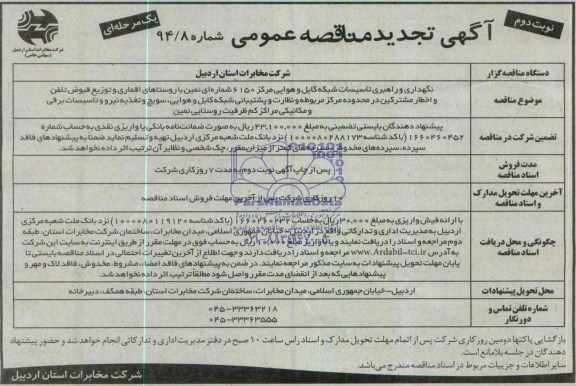 نوبت دوم
آگهی تجدید مناقصه عمومی شماره ۹۴/۸
یک مرحله‌ای
شرکت مخابرات استان اردبیل
(سهامی خاص)
دستگاه مناقصه گزار
شرکت مخابرات استان اردبیل
موضوع مناقصه
نگهداری و راهبری تاسیسات شبکه کابل و هوایی مرکز ۶۱۵۰ شماره‌ای نمین با روستاهای اقماری و توزیع قبوض تلفن
و اخطار مشترکین در محدوده مرکز مربوطه و نظارت و پشتیبانی شبکه کابل و هوایی، سوئیچ و تغذیه نیرو و تاسیسات برقی
و مکانیکی مراکز کم ظرفیت روستایی نمین
تضمین شرکت در مناقصه
پیشنهاد دهندگان بایستی تضمینی به مبلغ ۴۳,۱۰۰,۰۰۰ ریال به صورت ضمانت‌نامه بانکی یا واریزی نقدی به حساب شماره
۱۶۶۰۴۶۰۴۵۲ (با کد شناسه ۱۰۰۰۰۰۸۰۲۸۸۱۷۳) نزد بانک ملت شعبه مرکزی اردبیل تهیه و تسلیم نماید ضمنا به پیشنهادهای فاقد
سپرده، سپرده‌های مخدوش، سپرده‌های کمتر از میزان مقرر، چک شخصی و نظایر آن ترتیب اثر داده نخواهد شد.
مدت فروش
اسناد مناقصه
پس از چاپ آگهی نوبت دوم به مدت ۷ روز کاری شرکت
آخرین مهلت تحویل مدارک
و اسناد مناقصه
۱۰ روز کاری شرکت پس از آخرین مهلت فروش اسناد مناقصه
چگونگی و محل دریافت
اسناد مناقصه
با ارائه فیش واریزی به مبلغ ۳۰۰,۰۰۰ ریال به حساب (با کد شناسه ۱۰۰۰۰۰۸۰۱۱۹۱۲۰) نزد بانک ملت شعبه مرکزی
اردبیل به مدیریت اداری و تدارکاتی واقع در اردبیل- خیابان جمهوری اسلامی، میدان مخابرات، ساختمان شرکت مخابرات استان، طبقه
دوم مراجعه و اسناد را دریافت نمایند و یا با واریز مبلغ ریال به حساب فوق در مهلت مقرر از طریق اینترنت به سایت این شرکت
به آدرس www.Ardabil-tci.ir مراجعه و اسناد را دریافت دارند و جهت اطلاع از آخرین تغییرات احتمالی در اسناد مناقصه بایستی تا
پایان مهلت تحویل پیشنهادات به سایت مذکور مراجعه نمایند. در ضمن به پیشنهادهای فاقد امضاء، مشروط، مخدوش، فاقد لاک و مهر و
پیشنهادهایی که بعد از انقضای مدت مقرر واصل شود مطلقا ترتیب اثر داده نخواهد شد.
محل تحویل پیشنهادات
اردبیل- خیابان جمهوری اسلامی، میدان مخابرات، ساختمان شرکت مخابرات استان، طبقه همکف، دبیرخانه
شماره تلفن تماس و
دورنگار
۰۴۵-۳۳۳۶۳۲۱۸
۰۴۵-۳۳۳۶۳۵۵۵
بازگشایی پاکتها دومین روز کاری شرکت پس از اتمام مهلت تحویل مدارک و اسناد راس ساعت ۱۰ صبح در دفتر مدیریت اداری و تدارکاتی انجام خواهد شد و حضور پیشنهاد
دهندگان در جلسه بلامانع است.
سایر اطلاعات و جزییات مربوط در اسناد مناقصه مندرج می‌باشد.
شرکت مخابرات استان اردبیل